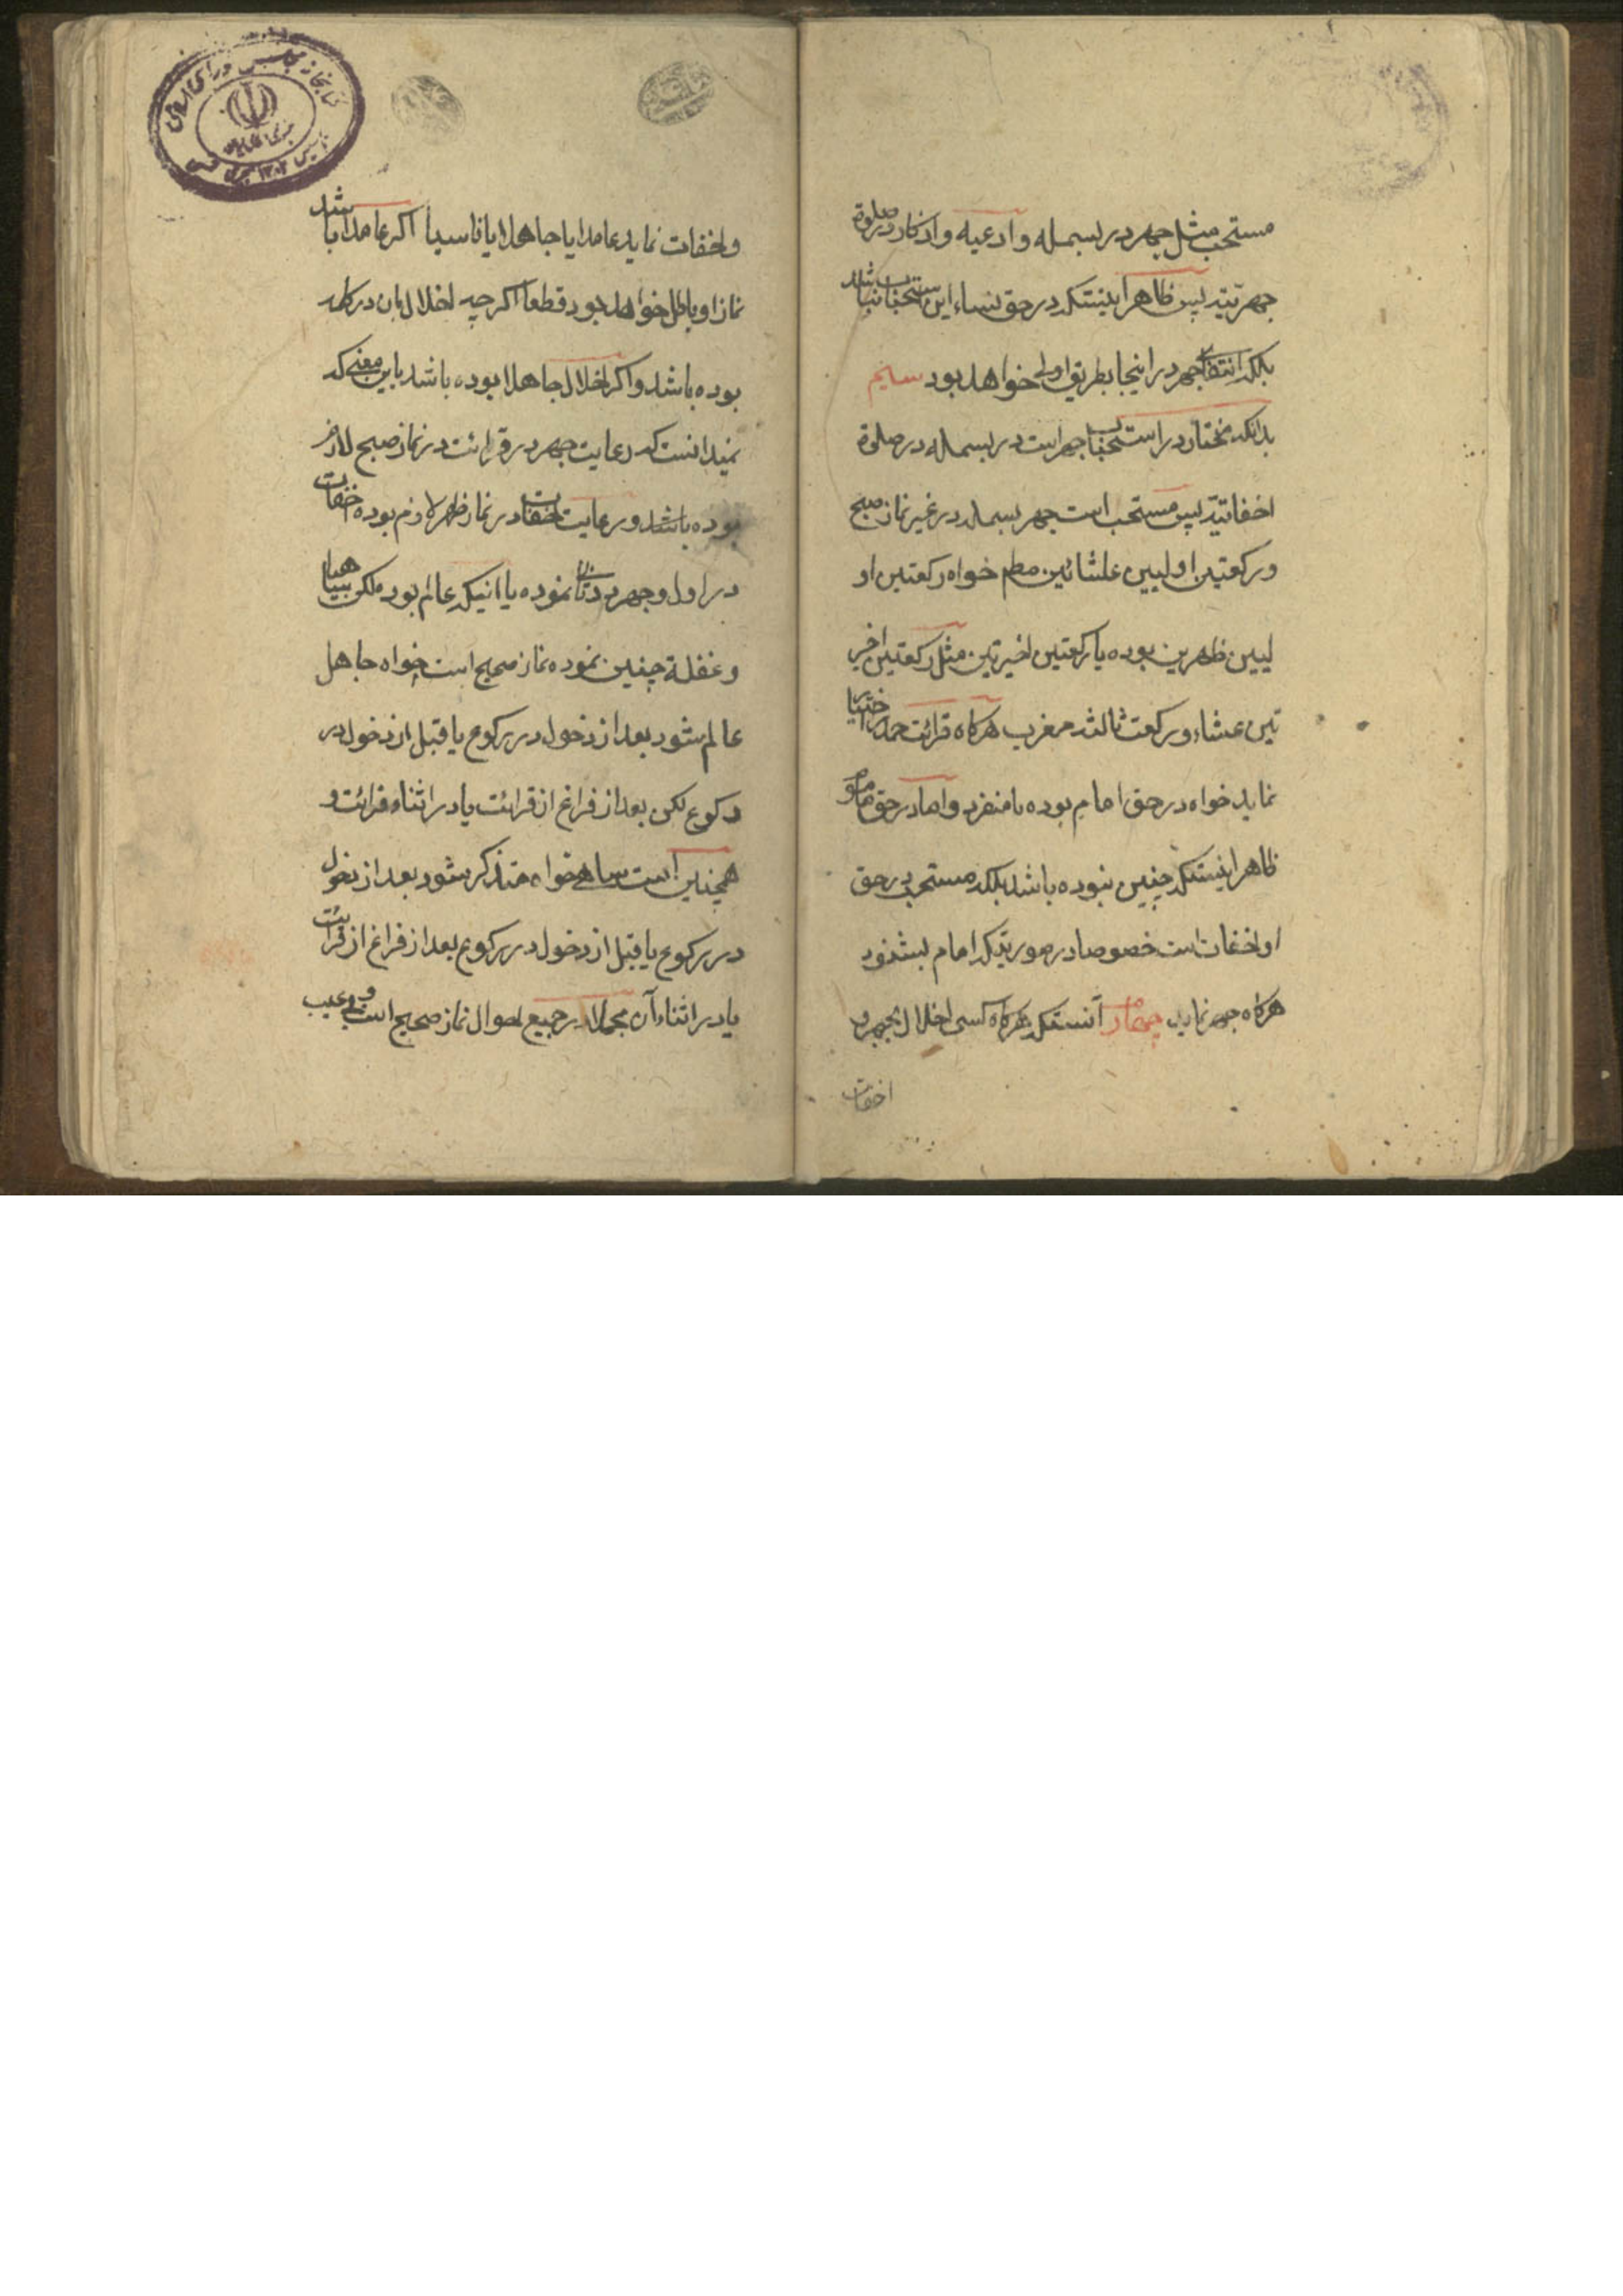 مستحب مثل جهر در بسمله و ادعیه و اذکار در صلوة
جهریّته پس ظاهر اینستکه در حق نساء این استحباب نباشد
بلکه انتفاء جهر در اینجا بطریق اولی خواهد بود سیم
بدانکه مختار در استحباب جهر است در بسمله در صلوة
اخفاتیّه پس مستحب است جهر بسمله در غیر نماز صبح
و رکعتین اولیین عشائین مطم خواه رکعتین او
لیین ظهرین بوده یا رکعتین اخیرتین مثل رکعتین اخیر
تین عشاء و رکعت ثالثه مغرب هرکاه قرائت حمد اختیار
نماید خواه در حق امام بوده یا منفرد و اما در حق ماموم
ظاهر اینستکه چنین نبوده باشد بلکه مستحب در حق
او اخفات است خصوصا در صورتیکه امام بشنود
هرکاه جهر نماید چهارم آنستکه هرکاه کسی اخلال بجهر و
اخفات
و اخفات نماید عامدا یا جاهلا یا ناسیا اکر عامدا باشد
نماز او باطل خواهد بود قطعا اکر چه اخلال بان در کلمه
بوده باشد و اکر اخلال جاهلا بوده باشد باین معنی که
نمیدانست که رعایت جهر در قرائت در نماز صبح لازم
بوده باشد و رعایت اخفات در نماز ظهر لازم بوده اخفات
در اول و جهر در ثانی نموده یا انیکه عالم بود ملکن
و غفلة چنین نموده نماز صحیح است خواه جاهل
عالم شود بعد از دخول در رکوع یا قبل از دخول در
رکوع لکن بعد از فراغ از قرائت یا در اثناء قرائت و
همچنین است ساهی خواه متذکر شود بعد از دخول
در رکوع یا قبل از دخول در رکوع بعد از فراغ از قرائت
یا در اثناء آن مجملا در جمیع احوال نماز صحیح است و